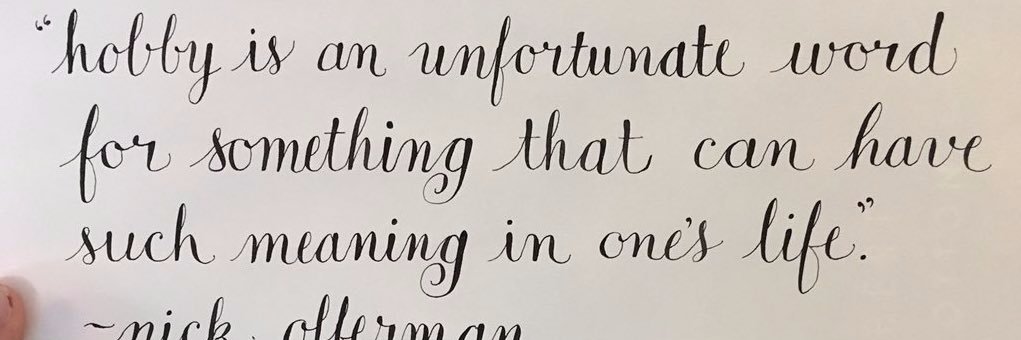 “hobby is an unfortunate word
for something that can have
such meaning in one's life.”
~nick offerman